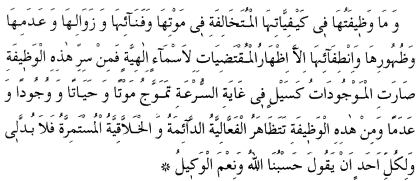 وَ مَا وَظٖيفَتُهَا فٖى كَيْفِيَّاتِهَا الْمُتَخَالِفَةِ فٖى مَوْتِهَا وَفَنَائِهَا وَ زَوَالِهَا وَ عَدَمِهَا
وَظُهُورِهَا وَانْطِفَائِهَا اِلَّا اِظْهَارُ الْمُقْتَضِيَاتِ لِاَسْمَاءٍ اِلٰهِيَّةٍ فَمِنْ سِرِّ هٰذِهِ الْوَظٖيفَةِ
صَارَتِ الْمَوْجُودَاتُ كَسَيْلٍ فٖى غَايَةِ السُّرْعَةِ تَتَمَوَّجُ مَوْتًا وَ حَيَاتًا وَ وُجُودًا وَ
عَدَمًا وَمِنْ هٰذِهِ الْوَظٖيفَةِ تَتَظَاهَرُ الْفَعَّالِيَّةُ الدَّائِمَةُ وَ الْخَلَّاقِيَّةُ الْمُسْتَمِرَّةُ فَلَا بُدَّلٖى
وَلِكُلِّ اَحَدٍ اَنْ يَقُولَ حَسْبُنَا اللّٰهُ وَنِعْمَ الْوَكٖيلُ ❊